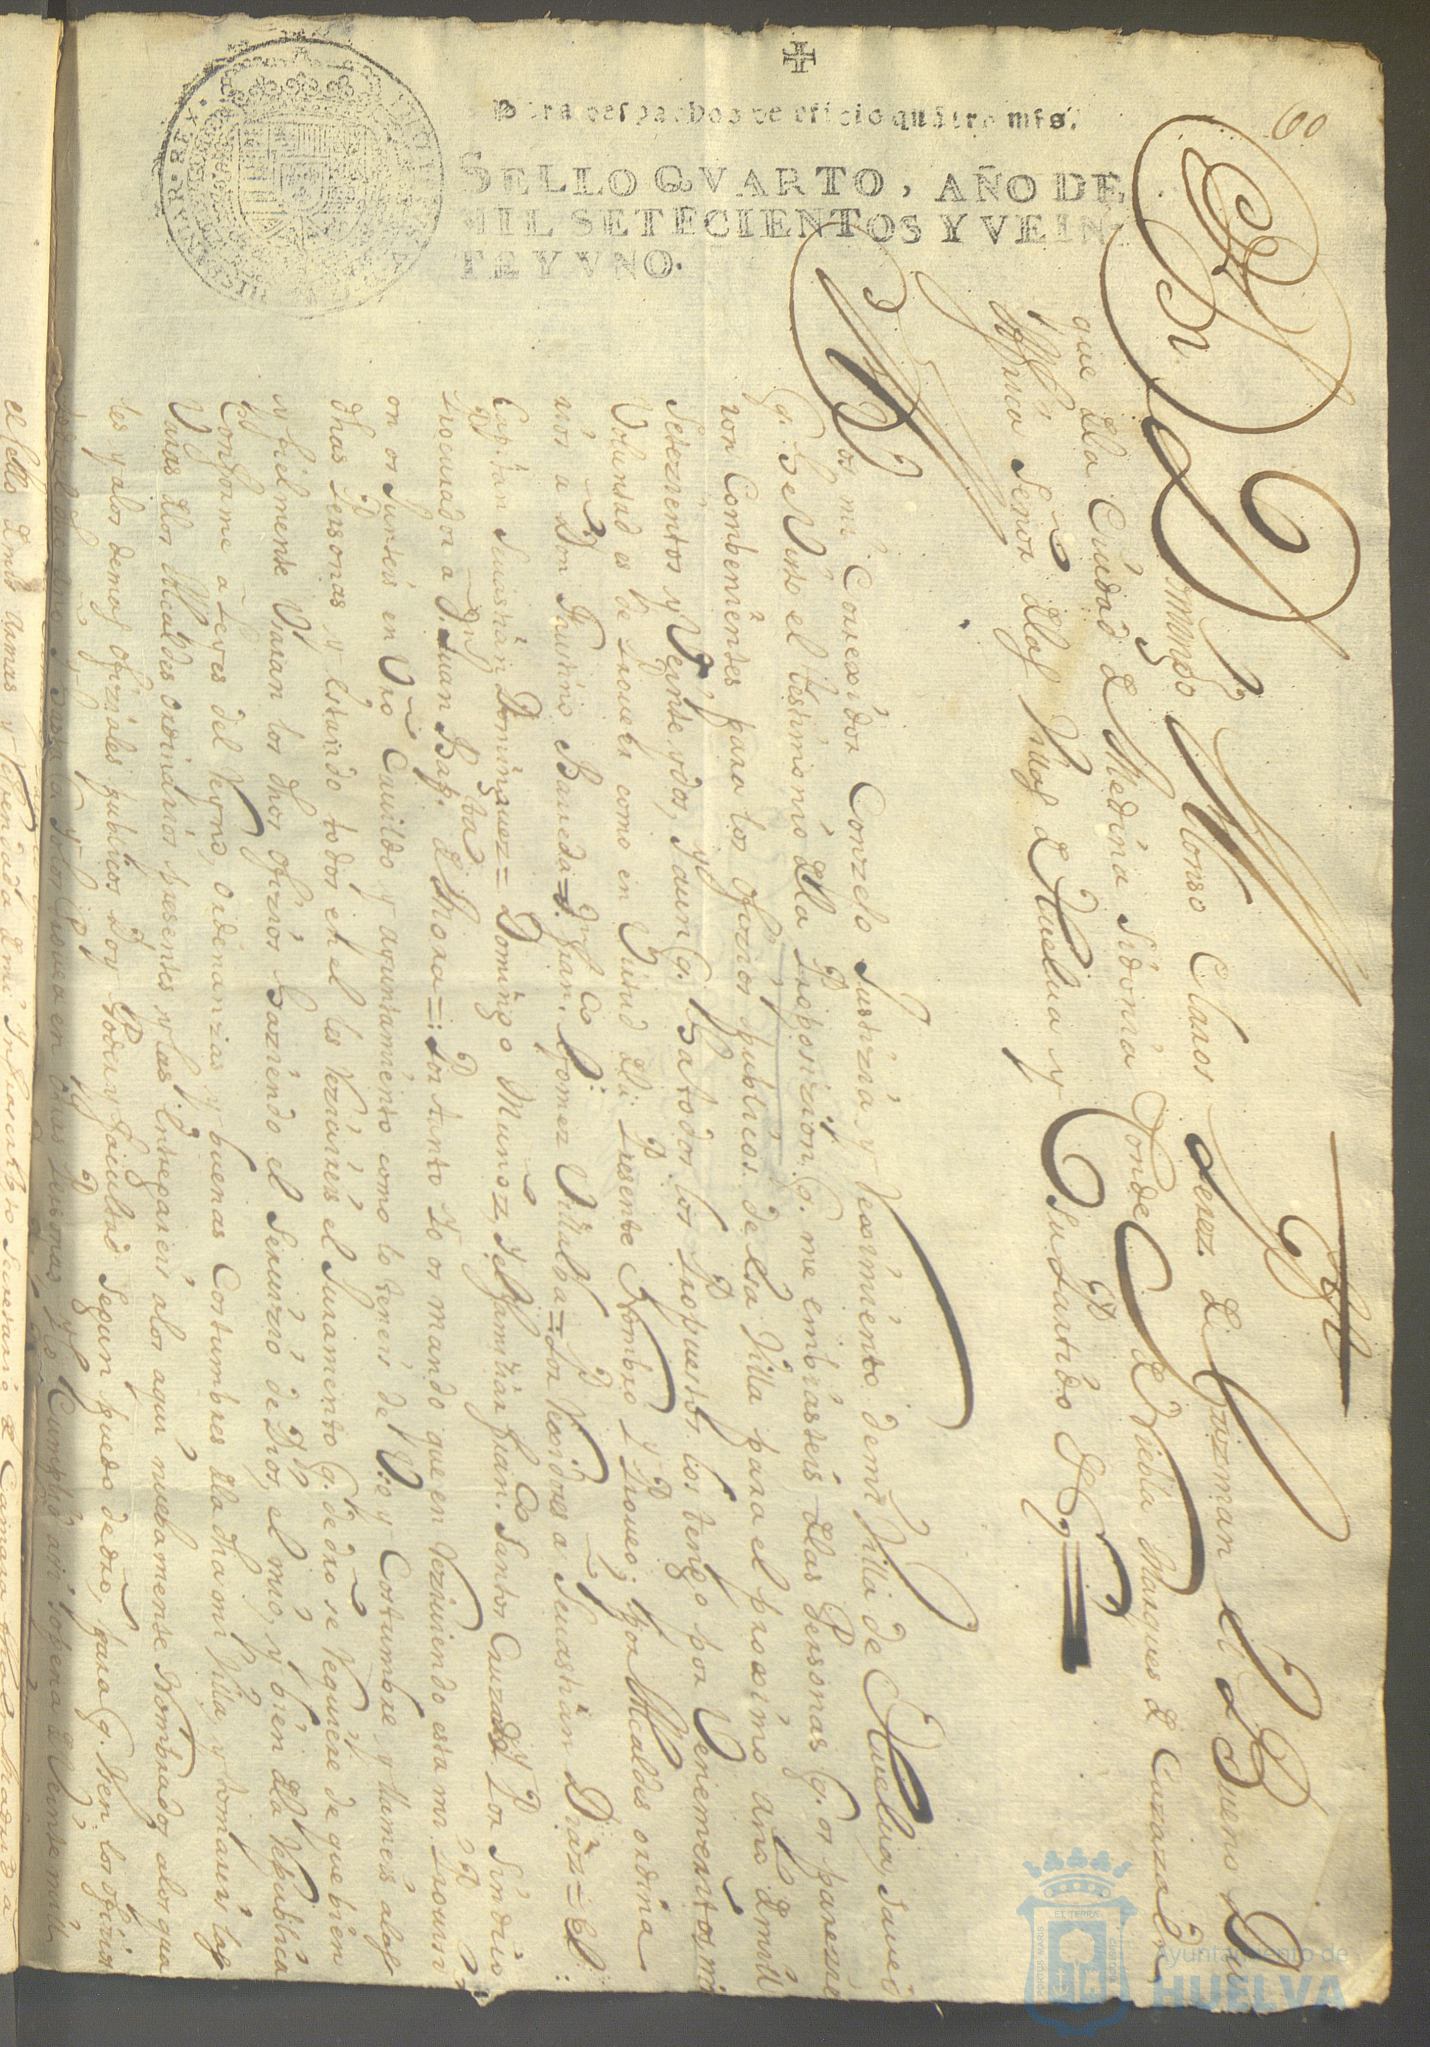 60
Para despachos de oficio quatro mrs.
SELLO QVARTO, AÑO DE
MIL SETECIENTOS Y VEIN
TE Y VNO.
Dn Domingo Alonso Claros Perez de Guzman el Bueno Du
que dla Ciudad d Medina Sidonia Conde d Niebla Marques d Cazaza en
Affrica Señor dlas Villas d Huelua y Su Partido &
Por mi Correxidor Conzejo Justizia y Reximiento demi Villa de Huelua, Saueis
q. he Visto el testimonio dla Proposizion q. me embiasteis dlas Personas q. os parezie
ron Combenientes para los ofizios publicos de esa Villa para el proximo año dmill
Setezientos y Veinte ydos, y aunq. a todos los Propuestos los tengo por Venemeritos, mi
Voluntad es de Proueer como en Virtud dla Presente Nombro y Proueo; por Alcaldes ordina
rios a Don Faustino Barreda = D. fran.co Gomez Villalba = Por Rexidores a Seuastian Diaz = El
Capitan Seuastian Dominguez = Domingo Muñoz, y el familiar fran.co Santos Cauza y Por Sindico
Procurador a D. Juan Bap.ta d Mora = Por tanto Yo os mando que en Reziuiendo esta mi Prouisi
on os Junteis en Vro Cauildo y ayuntamiento como lo teneis de Vso y Costumbre y llameis alas
dhas Personas y Estando todos en el les Reziuireis el Juramento q. de dro se Requiere de que bien
y fielmente Vsaran los dhos ofizios haziendo el Seruizio de Dios, el mio, y bien dla Republica
Conforme a Leyes del Reyno, ordenanzas y buenas Costumbres dla dha mi Villa, y tomareis las
Varas dlos Alcaldes ordinarios presentes y las Entregareis alos aqui nuebamente Nombrados alos qua
les y alos demas ofiziales publicos Doy Poder y facultad Segun puedo de dro, para q. Vsen los ofizios
Cumplid asi Sopena d Veinte mill
el sello dmis Armas y Refrendada dmi Infraescrito Secretario d Camara
Ayuntamiento de
HUELVA